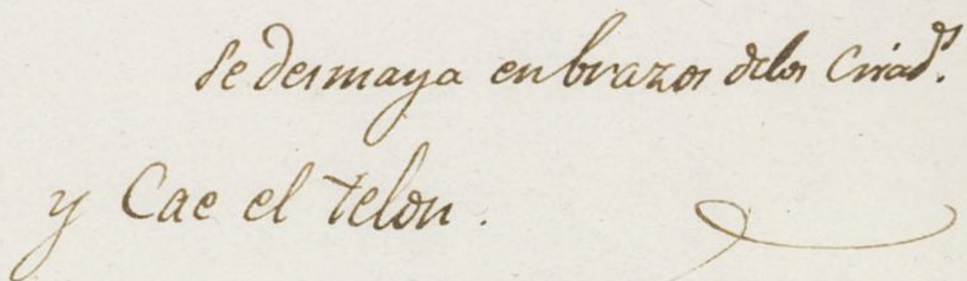 se desmaya en brazos delos Criad.s
y Cae el telon.